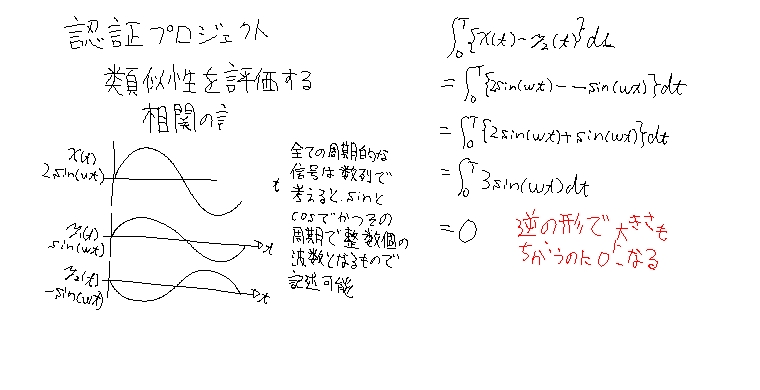 認証プロジェクト
類似性を評価する
相関の話
x(t)
2sin(ωt)
t
y₁(t)
sin(ωt)
t
y₂(t)
-sin(ωt)
t
全ての周期的な
信号は数列で
考えると、sinと
cosでかつその
周期で整数個の
波数となるもので
記述可能
∫₀ᵀ{x(t)-y₂(t)}dt
=∫₀ᵀ{2sin(ωt)--sin(ωt)}dt
=∫₀ᵀ{2sin(ωt)+sin(ωt)}dt
=∫₀ᵀ3sin(ωt)dt
=0
逆の形で大きさも
ちがうのに0になる